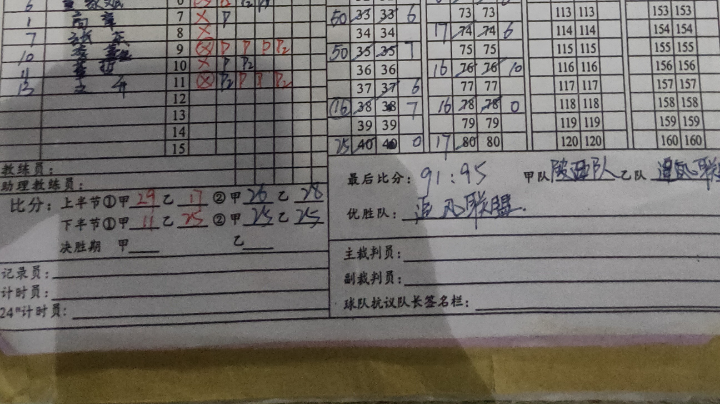 7 X P
8 X
10 9 X P P P P2
10 X P P2
13 11 X P2 P P P2
12
13
14
15
73 73 113 113 153 153
50 33 33 6
34 34 17 74 74 6 114 114 154 154
50 35 35 7 75 75 115 115 155 155
36 36 16 76 76 10 116 116 156 156
37 37 6 77 77 117 117 157 157
16 38 38 7 16 78 78 0 118 118 158 158
39 39 79 79 119 119 159 159
25 40 40 0 17 80 80 120 120 160 160
教练员：
助理教练员：
比分：上半节①甲 29 乙 17 ②甲 26 乙 28
下半节①甲 11 乙 25 ②甲 25 乙 25
决胜期 甲 乙
记录员：
计时员：
24"计时员：
最后比分：91：95 甲队 陕西队 乙队 追风联盟
优胜队：追风联盟
主裁判员：
副裁判员：
球队抗议队长签名栏：